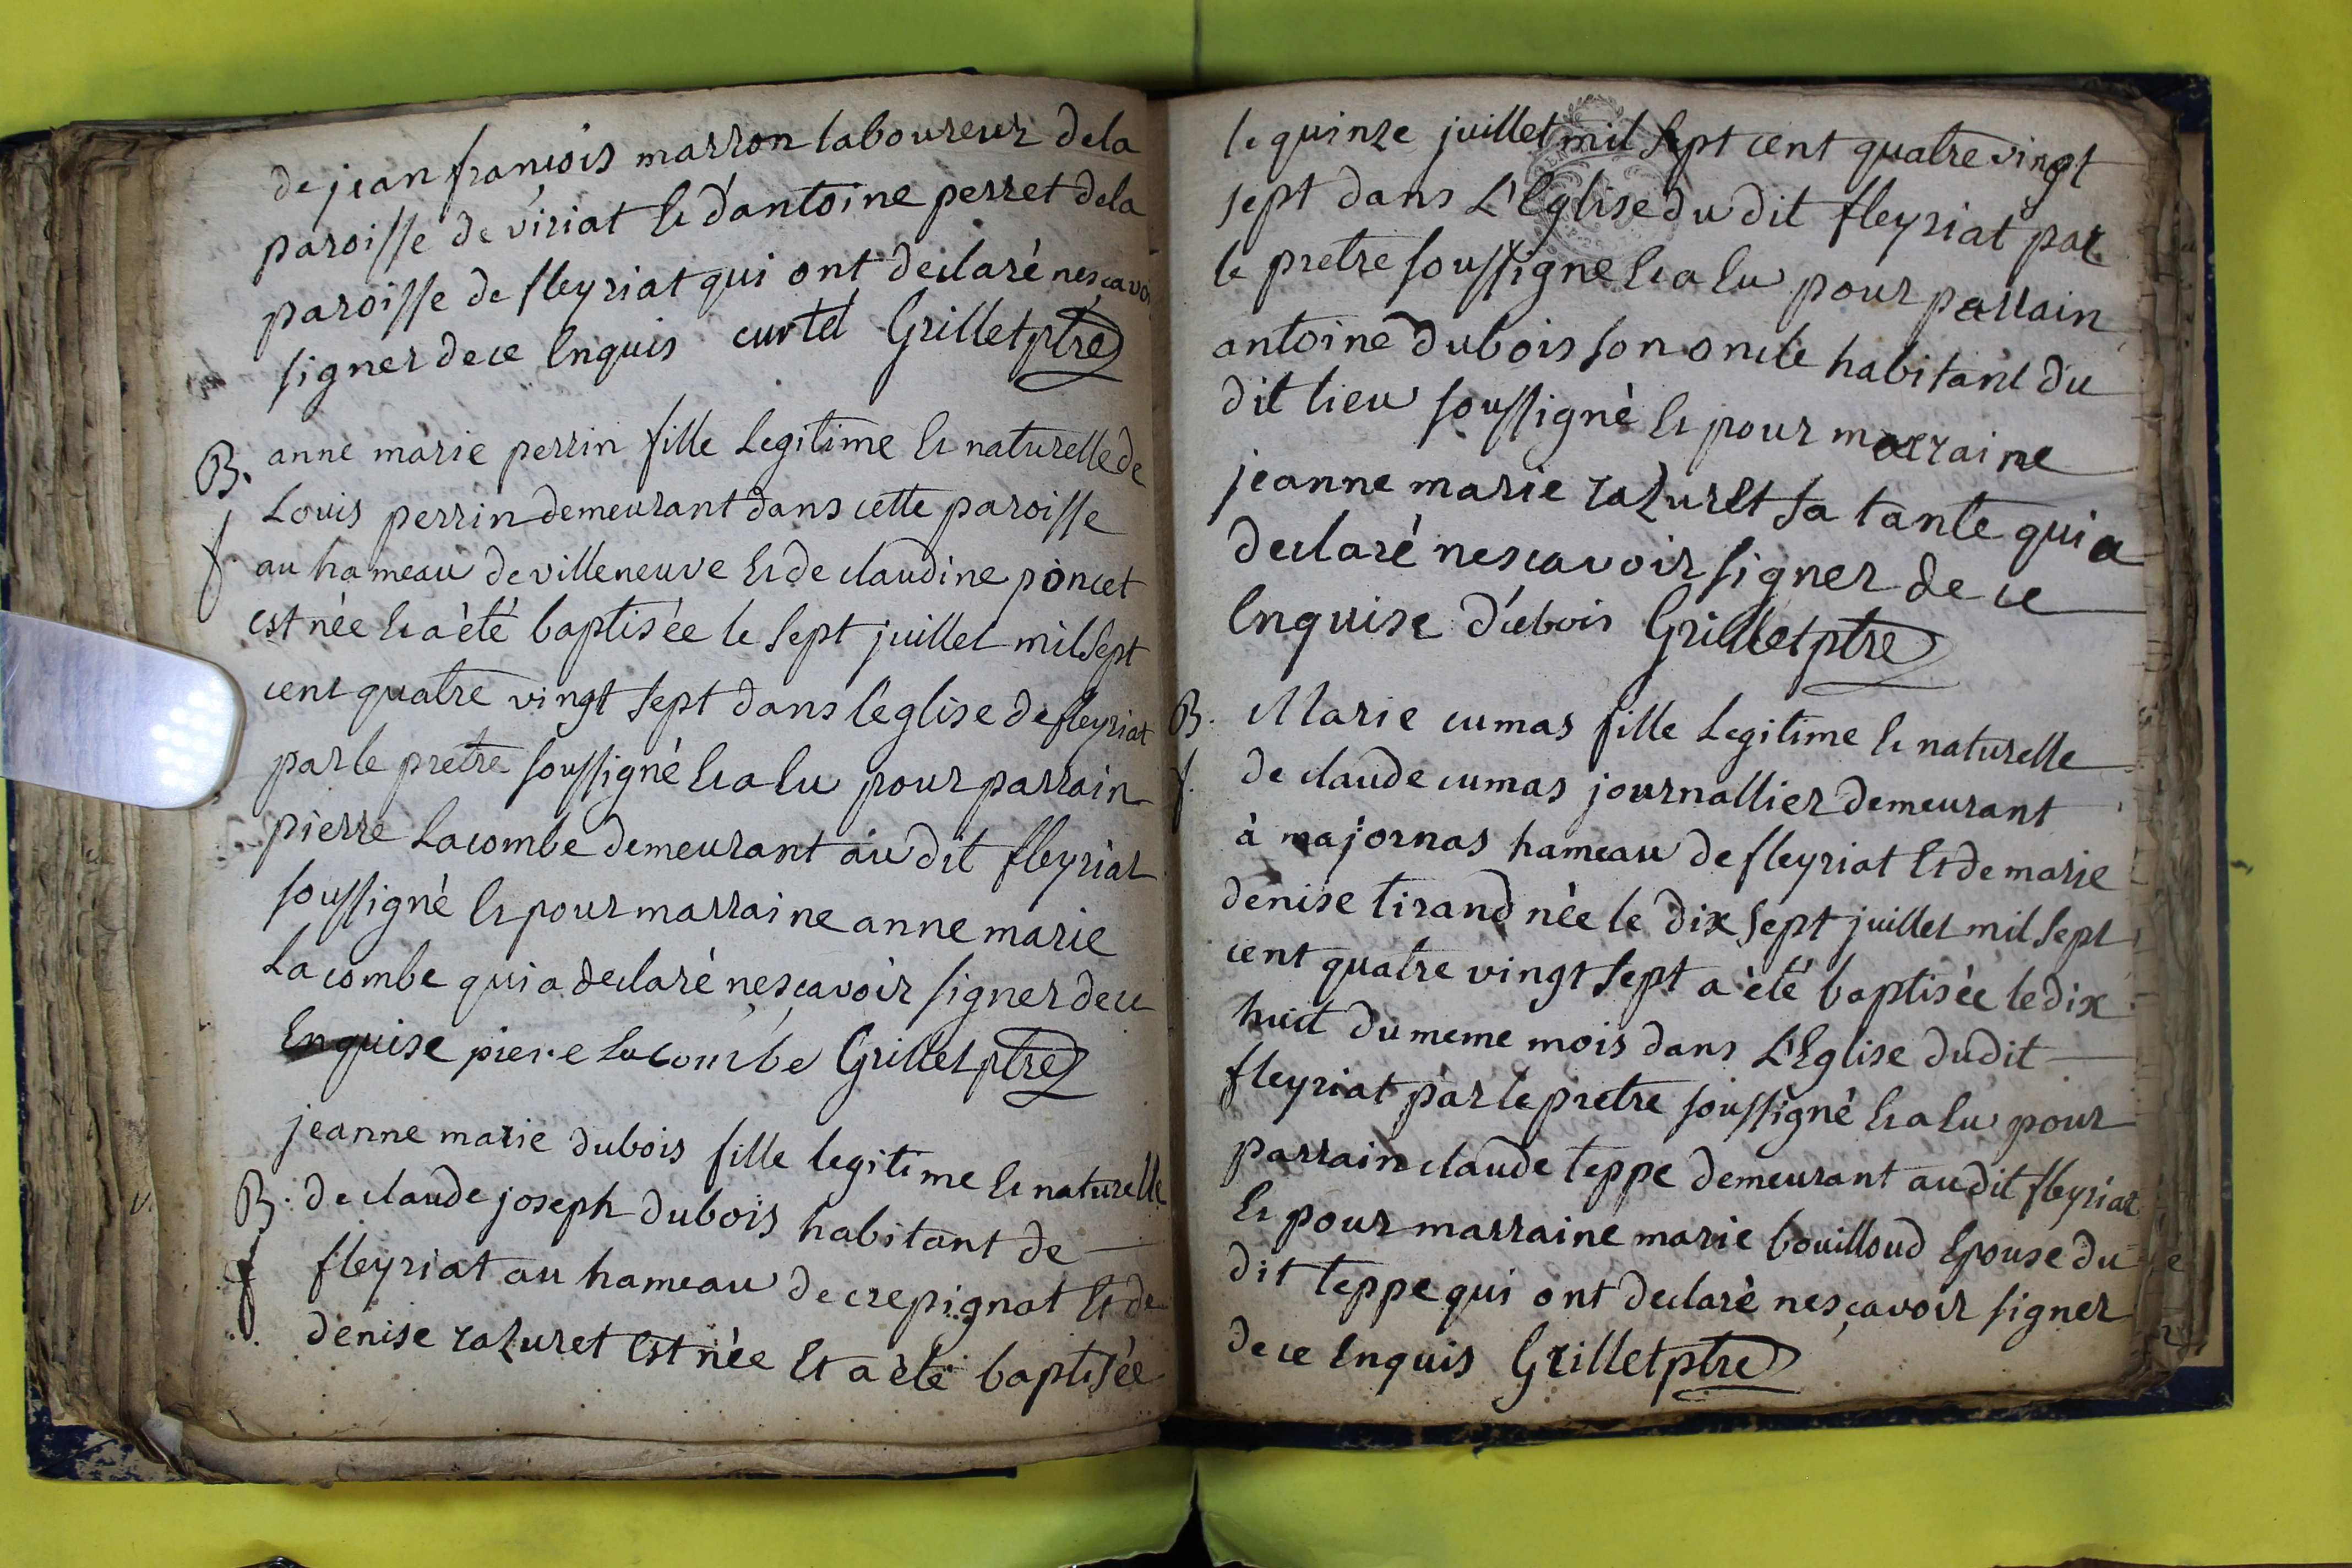 de jean francois marron laboureur dela
paroisse de viriat et d'antoine perret dela
paroisse de fleyriat qui ont declaré nesçavoi
signer dece enquis curtel Grillet ptre
B. anne marie perrin fille Legitime et naturelle de
Louis perrin demeurant dans cette paroisse
f. au hameau de villeneuve et de claudine poncet
est née et a èté baptisée le sept juillet mil sept
cent quatre vingt sept dans l'eglise de fleyriat
par le pretre soussigné et a eu pour parrain
pierre Lacombe demeurant au dit fleyriat
soussigné et pour marraine anne marie
Lacombe qui a declaré nesçavoir signer dece
Enquise piere lacombe Grillet ptre
jeanne marie dubois fille legitime et naturelle
B. de claude joseph dubois habitant de
f fleyriat au hameau de crepignat et de
denise razuret est née et a èté baptisée
le quinze juillet mil sept cent quatre vingt
sept dans L'Eglise du dit fleyriat par
le pretre soussigné et a eu pour parrain
antoine dubois son oncle habitant du
dit lieu soussigné et pour marraine
jeanne marie razuret sa tante qui a
declaré nescavoir signer de ce
enquise dubois Grillet ptre
B. Marie cumas fille Legitime et naturelle
f. de claude cumas journallier demeurant
à majornas hameau de fleyriat et de marie
denise tirand née le dix sept juillet mil sept
cent quatre vingt sept a èté baptisée le dix
huit du meme mois dans L'Eglise dudit
fleyriat par le pretre soussigné et a eu pour
parrain claude teppe demeurant au dit fleyriat
et pour marraine marie bouilloud epouse du
dit teppe qui ont declaré nesçavoir signer
de ce enquis Grillet ptre